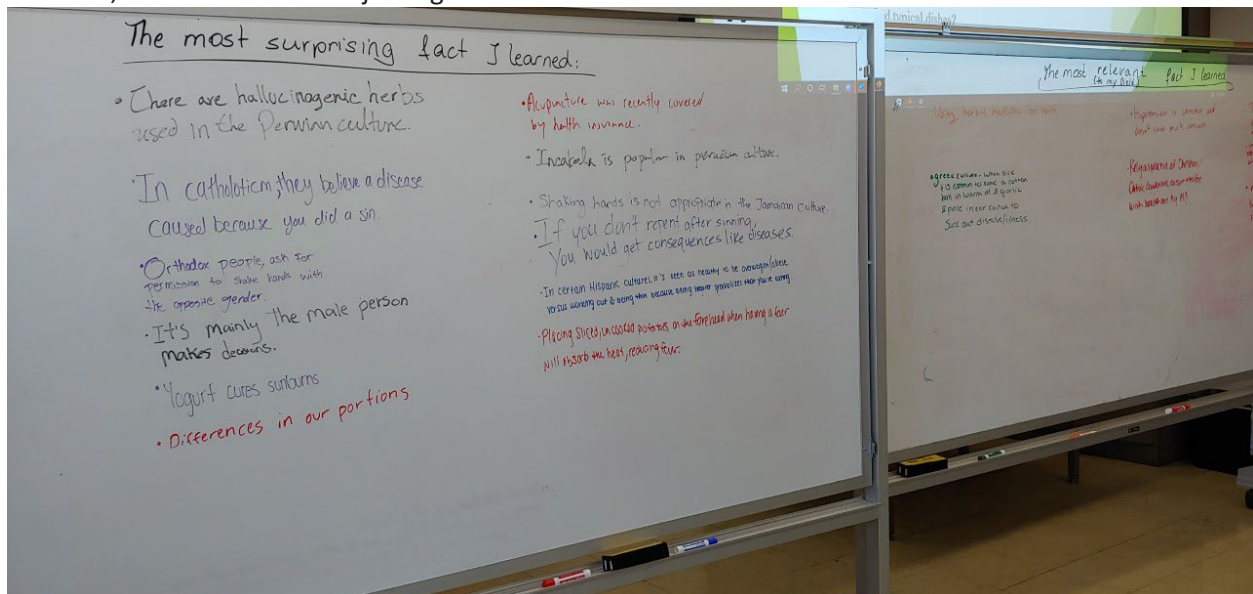 The most surprising fact I learned:
• There are hallucinogenic herbs
used in the Peruvian culture.
• In catholoticm, they believe a disease
caused because you did a sin.
• Orthodox people, ask for
permission to shake hands with
the opposite gender.
• It's mainly the male person
makes decisions.
• Yogurt cures sunburns
• Differences in our portions
• Acupuncture was recently covered
by health insurance.
• is popular in peruvian culture.
• Shaking hands is not appropriate in the Jamaican culture.
• If you don't repent after sinning,
You would get consequences like diseases.
• In certain Hispanic cultures, it's seen as healthy to be overweight/obese
versus working out & being thin because being heavier that you're eating.
• Placing sliced, uncooked potatoes on the forehead when having a fever
will absorb the heat, reducing fever.
d typical dishes?
The most relevant fact I learned
(to my field)
Using herbal medicine
• is common and
doesn't cause much concern
• greek culture - when sick
it is common to soak a cotton
ball in warm oil & garlic
& place in ear canal to
suck out disease/illness.